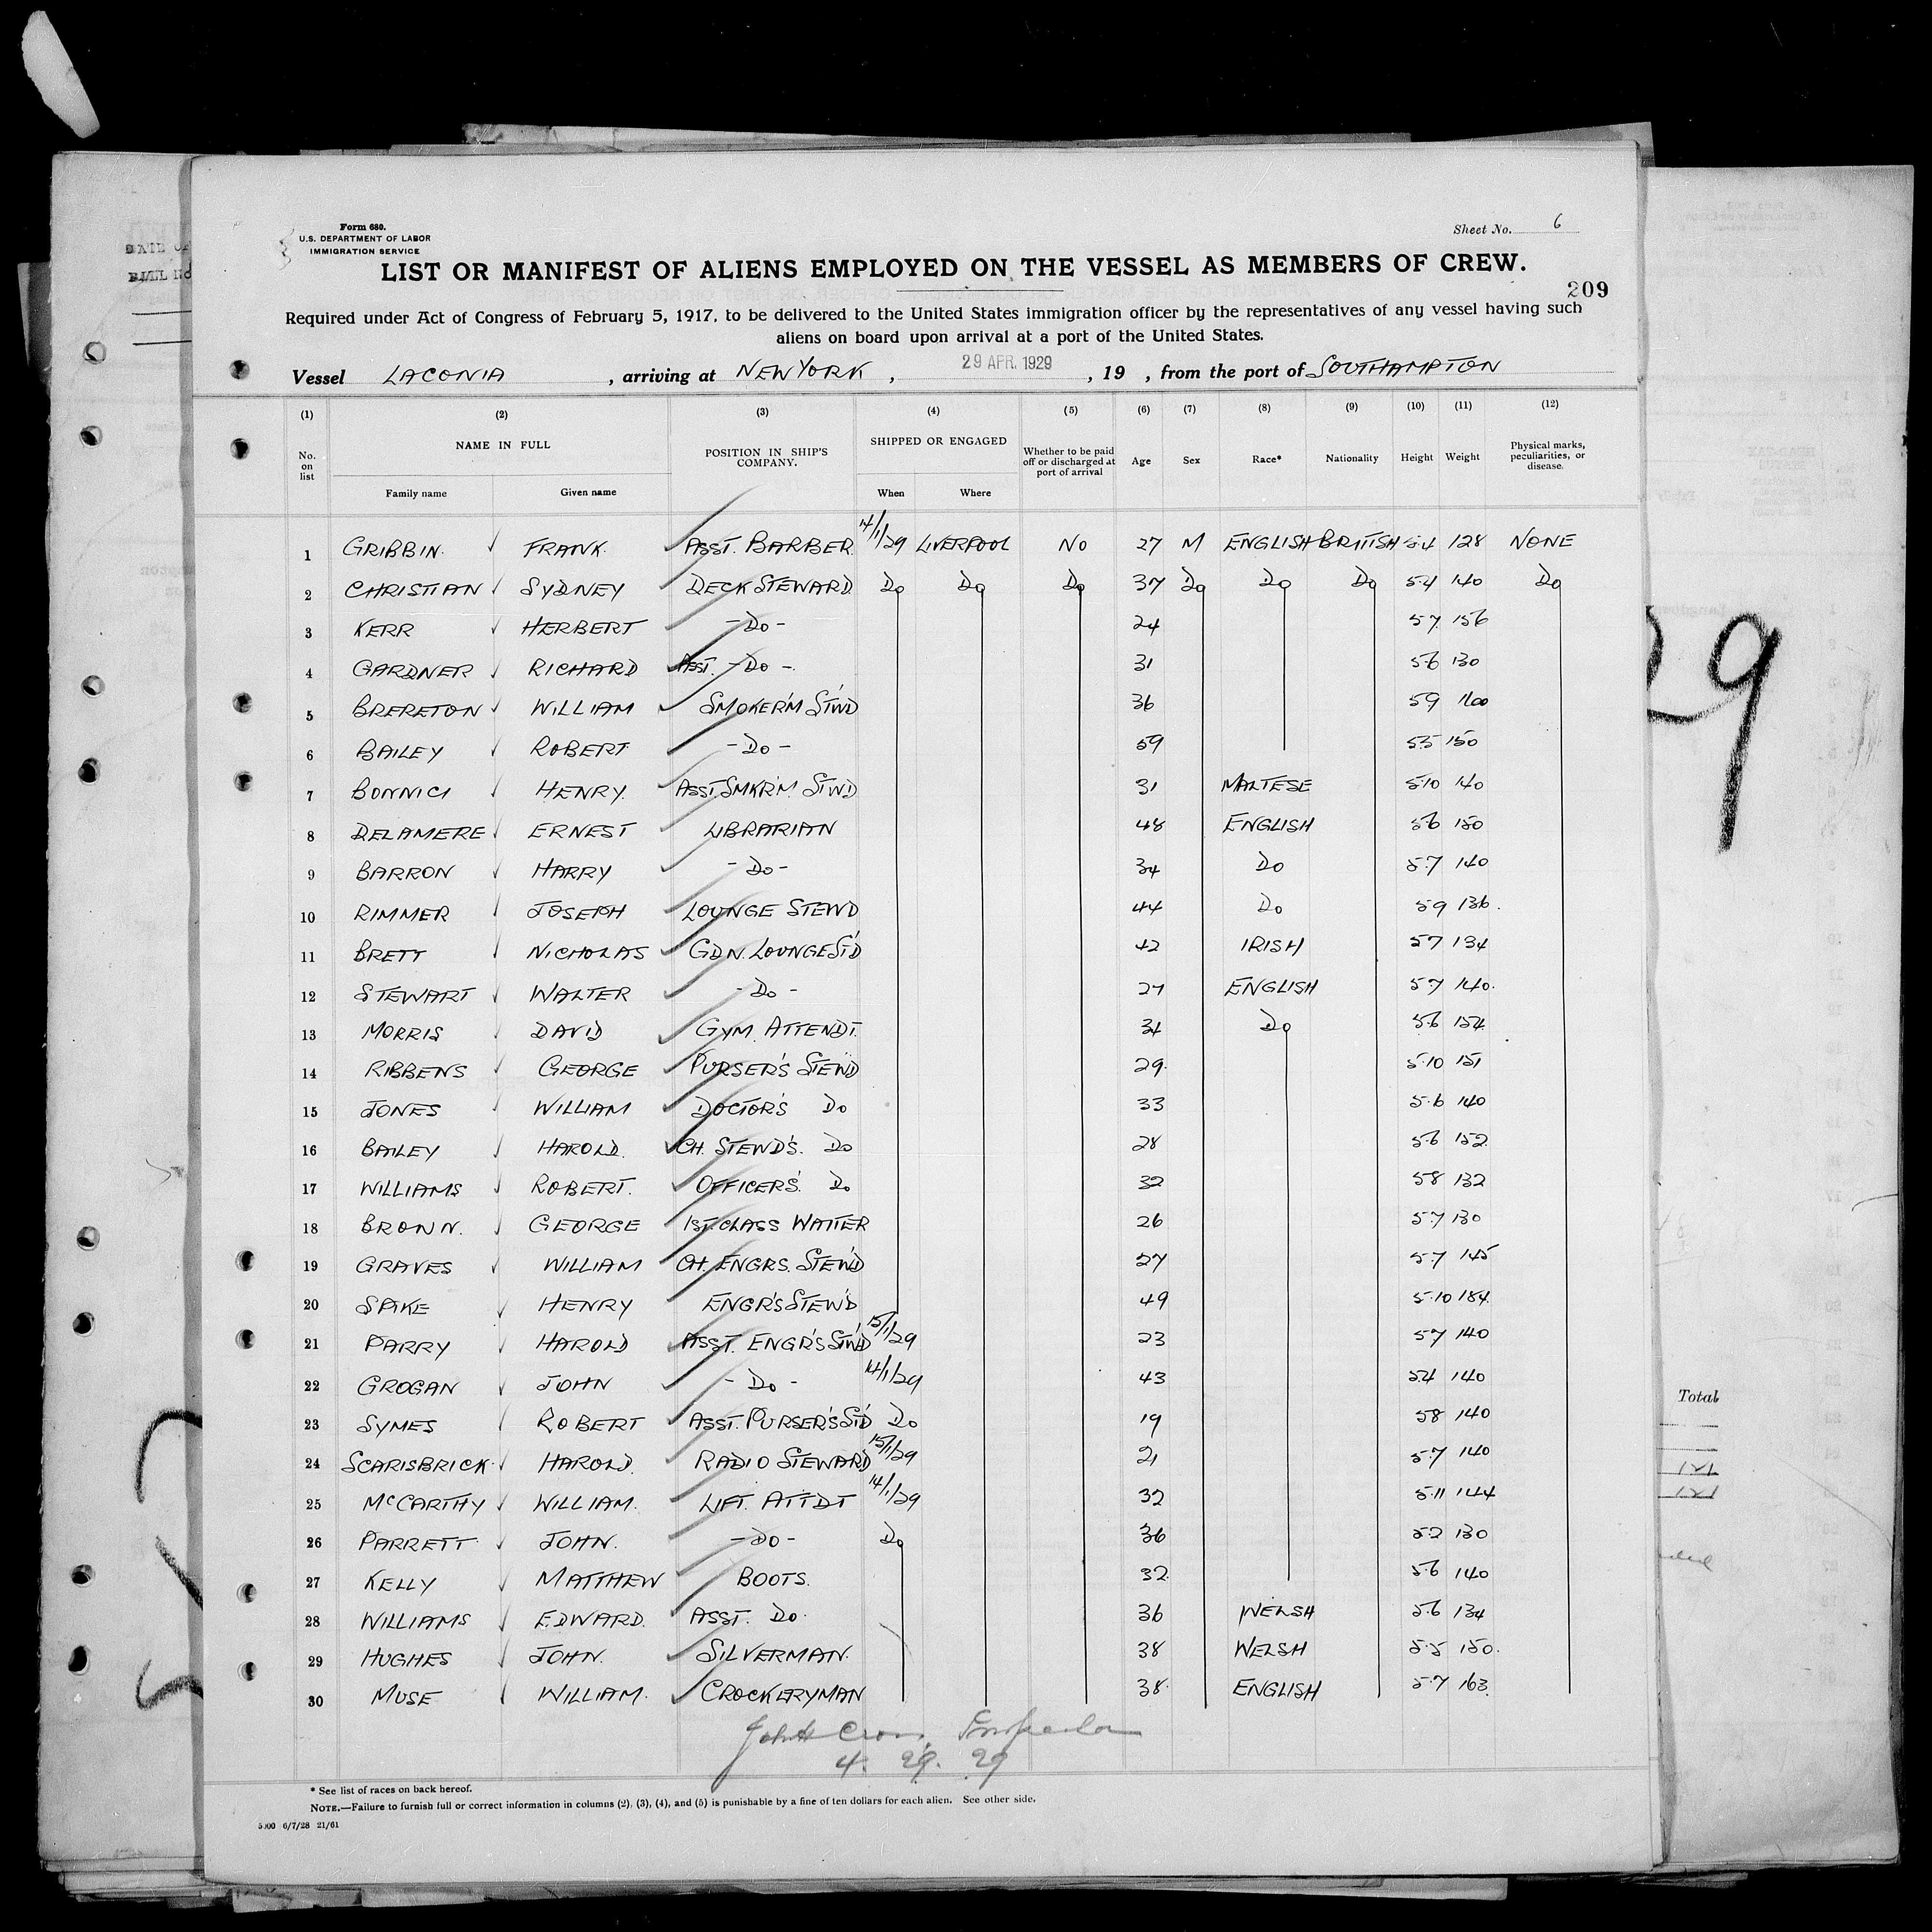 Form 680.
U.S. DEPARTMENT OF LABOR
IMMIGRATION SERVICE
Sheet No. 6
LIST OR MANIFEST OF ALIENS EMPLOYED ON THE VESSEL AS MEMBERS OF CREW.
209
Required under Act of Congress of February 5, 1917, to be delivered to the United States immigration officer by the representatives of any vessel having such
aliens on board upon arrival at a port of the United States.
Vessel LACONIA , arriving at NEW YORK , 29 APR. 1929 , 19 , from the port of SOUTHAMPTON
(1) (2) (3) (4) (5) (6) (7) (8) (9) (10) (11) (12)
No. on list NAME IN FULL Family name Given name POSITION IN SHIP'S COMPANY. SHIPPED OR ENGAGED When Where Whether to be paid off or discharged at port of arrival Age Sex Race* Nationality Height Weight Physical marks, peculiarities, or disease.
1 GRIBBIN. FRANK. ASST. BARBER. 14/1/29 LIVERPOOL NO 27 M ENGLISH BRITISH 5.4 128 NONE
2 CHRISTIAN SYDNEY DECK STEWARD. Do Do Do 37 Do Do Do 5.4 140 Do
3 KERR HERBERT -Do- 24 5.7 156
4 GARDNER RICHARD ASST. -Do-. 31 5.6 130
5 BRERETON WILLIAM SMOKER'M ST'WD 36 5.9 160
6 BAILEY ROBERT -Do- 59 5.5 150
7 BONNICI HENRY. ASST. SMKR'M. ST'WD 31 MALTESE 5.10 140
8 DELAMERE ERNEST LIBRARIAN 48 ENGLISH 5.6 150
9 BARRON HARRY -Do- 34 Do 5.7 140
10 RIMMER JOSEPH LOUNGE STEWD 44 Do 5.9 136.
11 BRETT NICHOLAS GDN. LOUNGE ST'D 42 IRISH 5.7 134
12 STEWART WALTER -Do- 27 ENGLISH 5.7 140.
13 MORRIS DAVID GYM. ATTENDT. 34 Do 5.6 154
14 RIBBENS GEORGE PURSER'S STEW'D 29. 5.10 151
15 JONES WILLIAM DOCTOR'S Do 33 5.6 140
16 BAILEY HAROLD. CH. STEWD'S. Do 28 5.6 152.
17 WILLIAMS ROBERT. OFFICER'S. Do 32 5.8 132
18 BROWN. GEORGE 1ST. CLASS WAITER 26 5.7 130
19 GRAVES WILLIAM CH. ENGRS. STEW'D 27 5.7 145
20 SPIKE HENRY ENGR'S STEW'D 49 5.10 184.
21 PARRY HAROLD ASST. ENGR'S ST'WD 15/1/29 23 5.7 140
22 GROGAN JOHN -Do- 14/1/29 43 5.4 140
23 SYMES ROBERT ASST. PURSER'S ST'D Do 19 5.8 140
24 SCARISBRICK HAROLD. RADIO STEWARD 15/1/29 21 5.7 140
25 McCARTHY WILLIAM. LIFT. ATTDT 14/1/29 32 5.11 144
26 PARRETT JOHN. -DO- Do 36 5.2 130
27 KELLY MATTHEW BOOTS. 32. 5.6 140
28 WILLIAMS EDWARD. ASST. Do. 36 WELSH 5.6 134
29 HUGHES JOHN. SILVERMAN. 38 WELSH 5.5 150.
30 MUSE WILLIAM. CROCKERYMAN 38. ENGLISH 5.7 163.
4. 29. 29
* See list of races on back hereof.
NOTE.—Failure to furnish full or correct information in columns (2), (3), (4), and (5) is punishable by a fine of ten dollars for each alien. See other side.
5000 6/7/28 21/61
Total
121
121